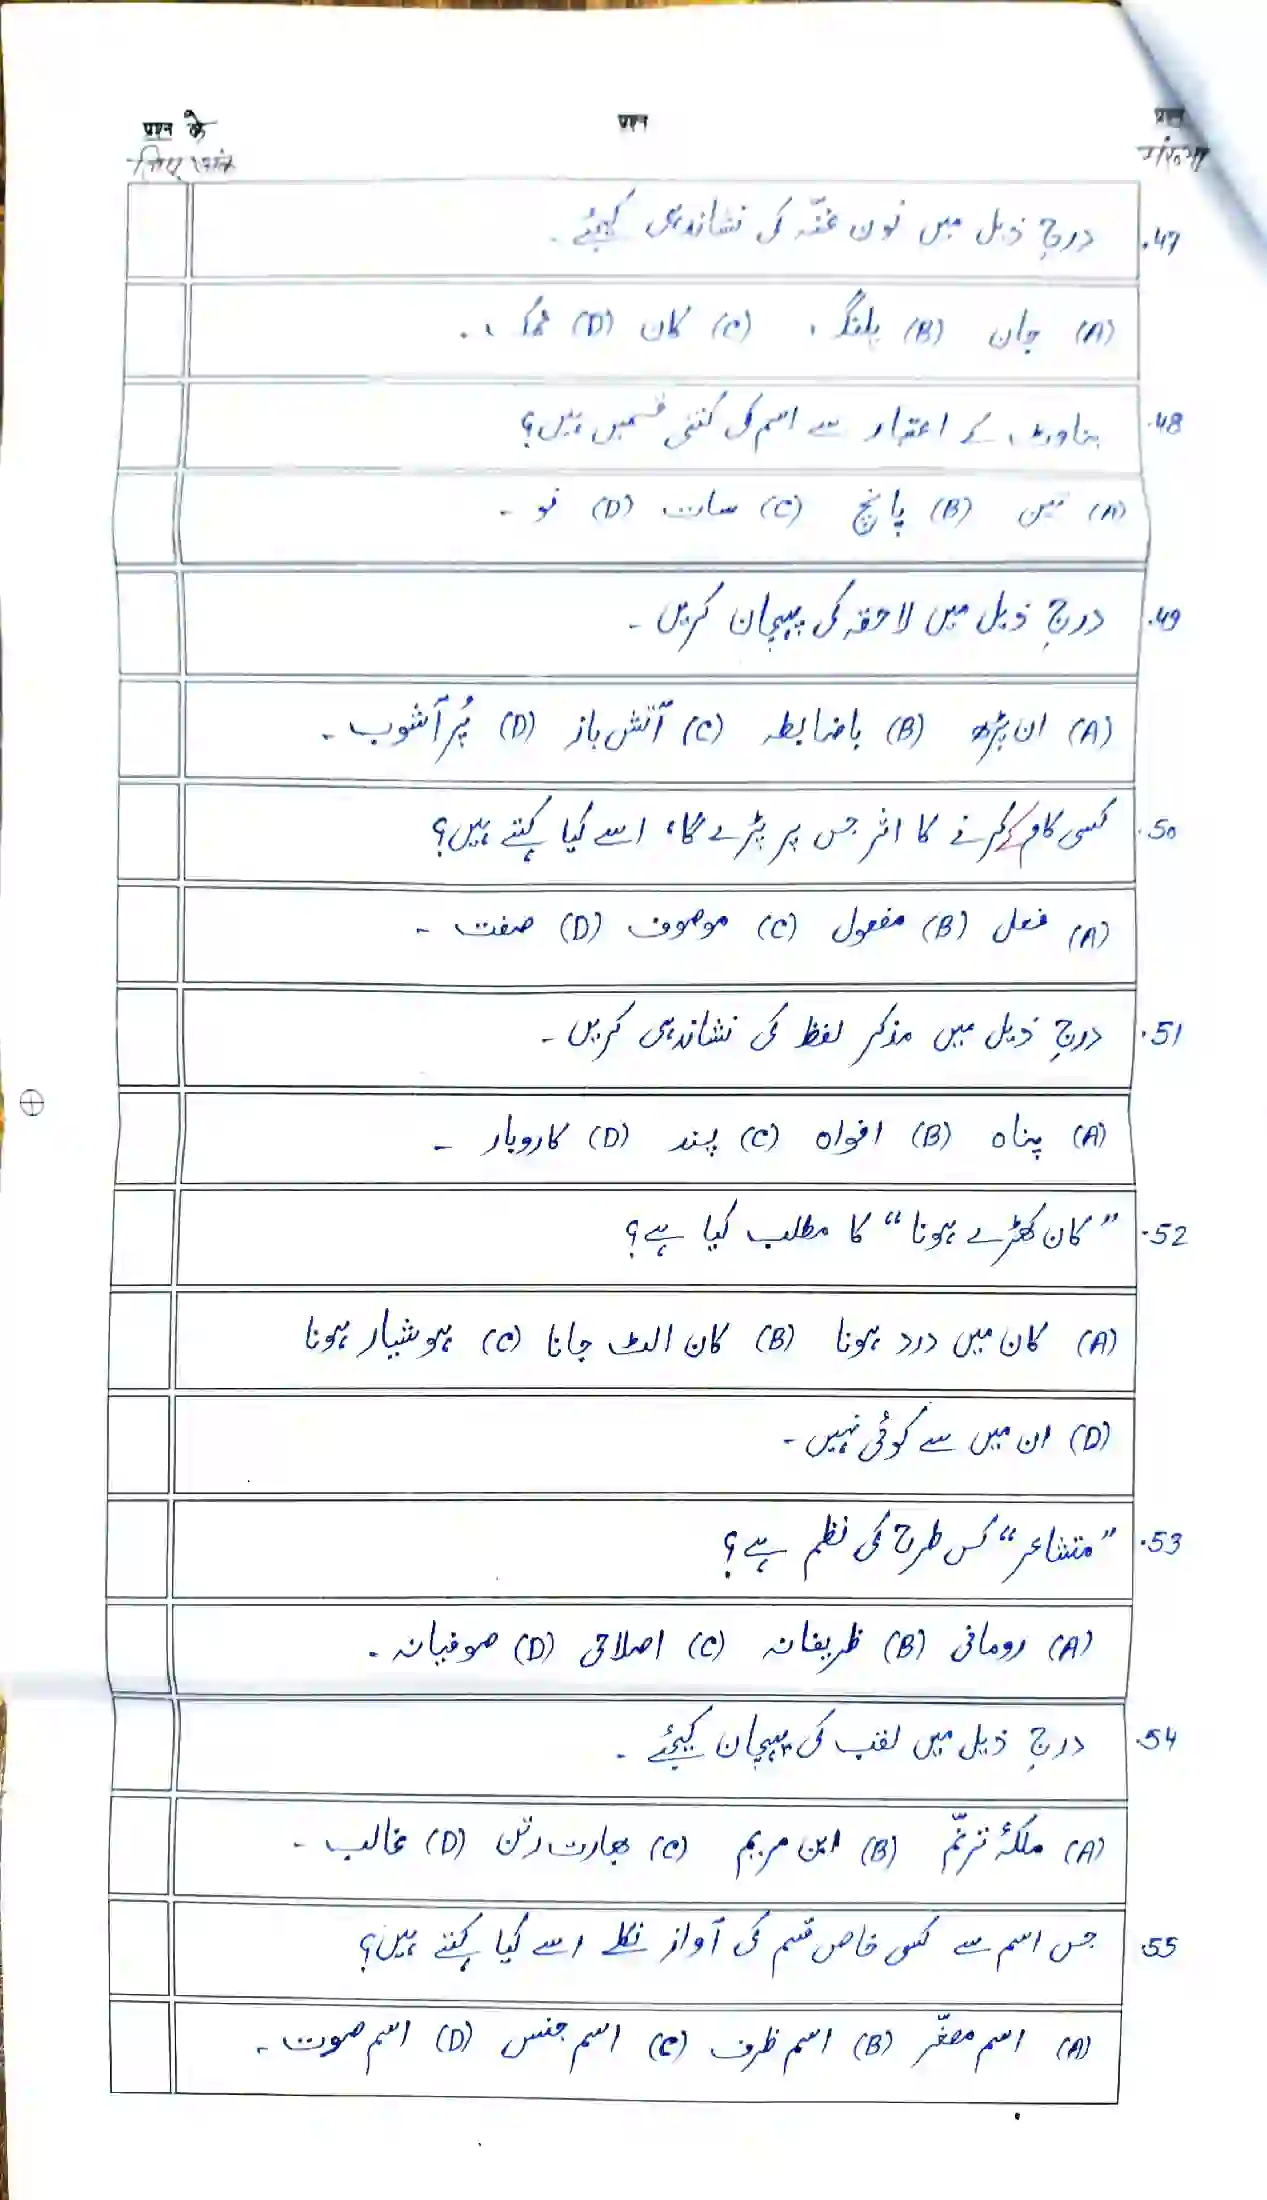 प्रश्न प्रश्न प्रश्न के
संख्या लिए अंक
47. درج ذیل میں نون غنّہ کی نشاندہی کیجئے۔
(A) جان (B) پلنگ، (C) کان (D) نمک،۔
48. بناوٹ کے اعتبار سے اسم کی کتنی قسمیں ہیں؟
(A) تین (B) پانچ (C) سات (D) نو ۔
49. درج ذیل میں لاحقہ کی پہچان کریں ۔
(A) ان پڑھ (B) باضابطہ (C) آتش باز (D) پُر آشوب ۔
50. کسی کام کے کرنے کا اثر جس پر پڑے گا، اسے کیا کہتے ہیں؟
(A) فعل (B) مفعول (C) موصوف (D) صفت ۔
51. درج ذیل میں مذکر لفظ کی نشاندہی کریں ۔
(A) پناہ (B) افواہ (C) پند (D) کاروبار ۔
52. ”کان کھڑے ہونا“ کا مطلب کیا ہے؟
(A) کان میں درد ہونا (B) کان الٹ جانا (C) ہوشیار ہونا
(D) ان میں سے کوئی نہیں ۔
53. ”متشاعر“ کس طرح کی نظم ہے؟
(A) رومانی (B) ظریفانہ (C) اصلاحی (D) صوفیانہ ۔
54. درج ذیل میں لقب کی پہچان کیجئے ۔
(A) ملکۂ ترنّم (B) ابن مریم (C) بھارت رتن (D) غالب ۔
55. جس اسم سے کسی خاص قسم کی آواز نکلے اسے کیا کہتے ہیں؟
(A) اسم مصغّر (B) اسم ظرف (C) اسم جنس (D) اسم صوت ۔